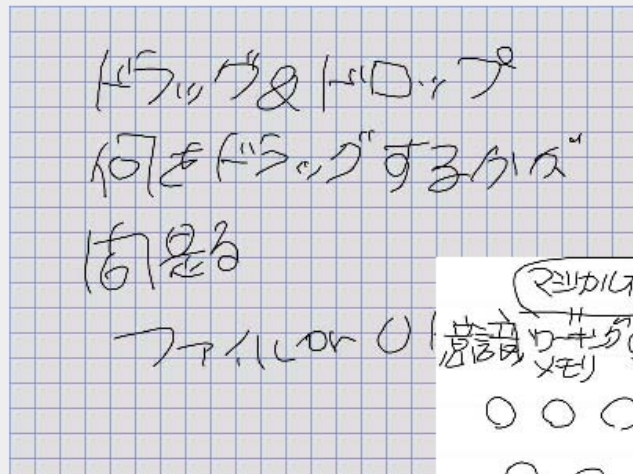 ドラッグ&ドロップ
何をドラッグするかが
問題
ファイル or
マジカル
意識 ワーキング
メモリ